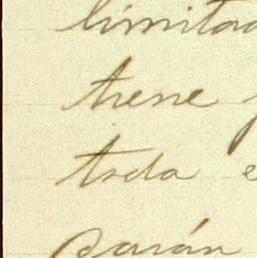 limitad
tiene
toda e
darán